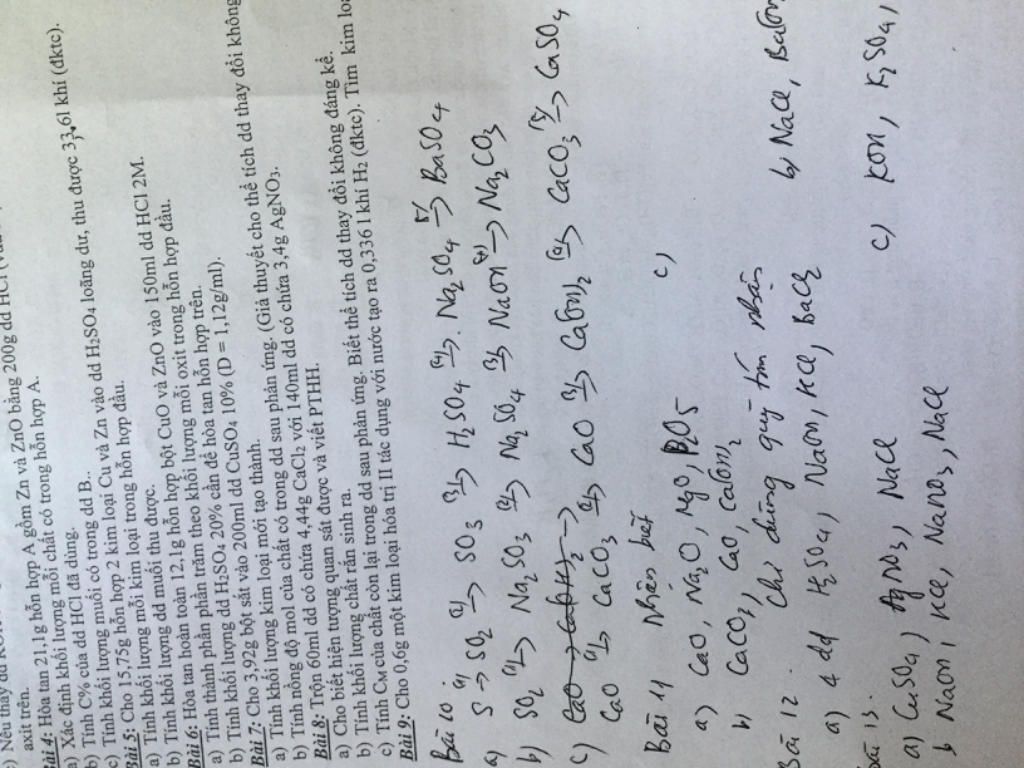 ) Nếu thay dd KOH
axit trên.
Bài 4: Hòa tan 21,1g hỗn hợp A gồm Zn và ZnO bằng 200g dd HCl
a) Xác định khối lượng mỗi chất có trong hỗn hợp A.
b) Tính C% của dd HCl đã dùng.
c) Tính khối lượng muối có trong dd B..
Bài 5: Cho 15,75g hỗn hợp 2 kim loại Cu và Zn vào dd H₂SO₄ loãng dư, thu được 33,6l khí (đktc).
a) Tính khối lượng mỗi kim loại trong hỗn hợp đầu.
b) Tính khối lượng dd muối thu được.
Bài 6: Hòa tan hoàn toàn 12,1g hỗn hợp bột CuO và ZnO vào 150ml dd HCl 2M.
a) Tính thành phần phần trăm theo khối lượng mỗi oxit trong hỗn hợp đầu.
b) Tính khối lượng dd H₂SO₄ 20% cần để hòa tan hỗn hợp trên.
Bài 7: Cho 3,92g bột sắt vào 200ml dd CuSO₄ 10% (D = 1,12g/ml).
a) Tính khối lượng kim loại mới tạo thành.
b) Tính nồng độ mol của chất có trong dd sau phản ứng. (Giả thuyết cho thể tích dd thay đổi không
Bài 8: Trộn 60ml dd có chứa 4,44g CaCl₂ với 140ml dd có chứa 3,4g AgNO₃.
a) Cho biết hiện tượng quan sát được và viết PTHH.
b) Tính khối lượng chất rắn sinh ra.
c) Tính Cᴍ của chất còn lại trong dd sau phản ứng. Biết thể tích dd thay đổi không đáng kể.
Bài 9: Cho 0,6g một kim loại hóa trị II tác dụng với nước tạo ra 0,336 l khí H₂ (đktc). Tìm kim loạ
Bài 10:
a) S →(1) SO₂ →(2) SO₃ →(3) H₂SO₄ →(4) Na₂SO₄ →(5) BaSO₄
b) SO₂ →(1) Na₂SO₃ →(2) Na₂SO₄ →(3) NaOH →(4) Na₂CO₃
c) CaO → Ca(OH)₂ →
CaO →(1) CaCO₃ →(2) CaO →(3) Ca(OH)₂ →(4) CaCO₃ →(5) CaSO₄
Bài 11 Nhận biết
a) CaO, Na₂O, MgO, P₂O₅ c)
b) CaCO₃, CaO, Ca(OH)₂
Bài 12: Chỉ dùng quỳ tím nhận
a) 4 dd H₂SO₄, NaOH, HCl, BaCl₂ b) NaCl, Ba(OH)
Bài 13.
a) CuSO₄, AgNO₃, NaCl c) KOH, K₂SO₄,
b NaOH, HCl, NaNO₃, NaCl